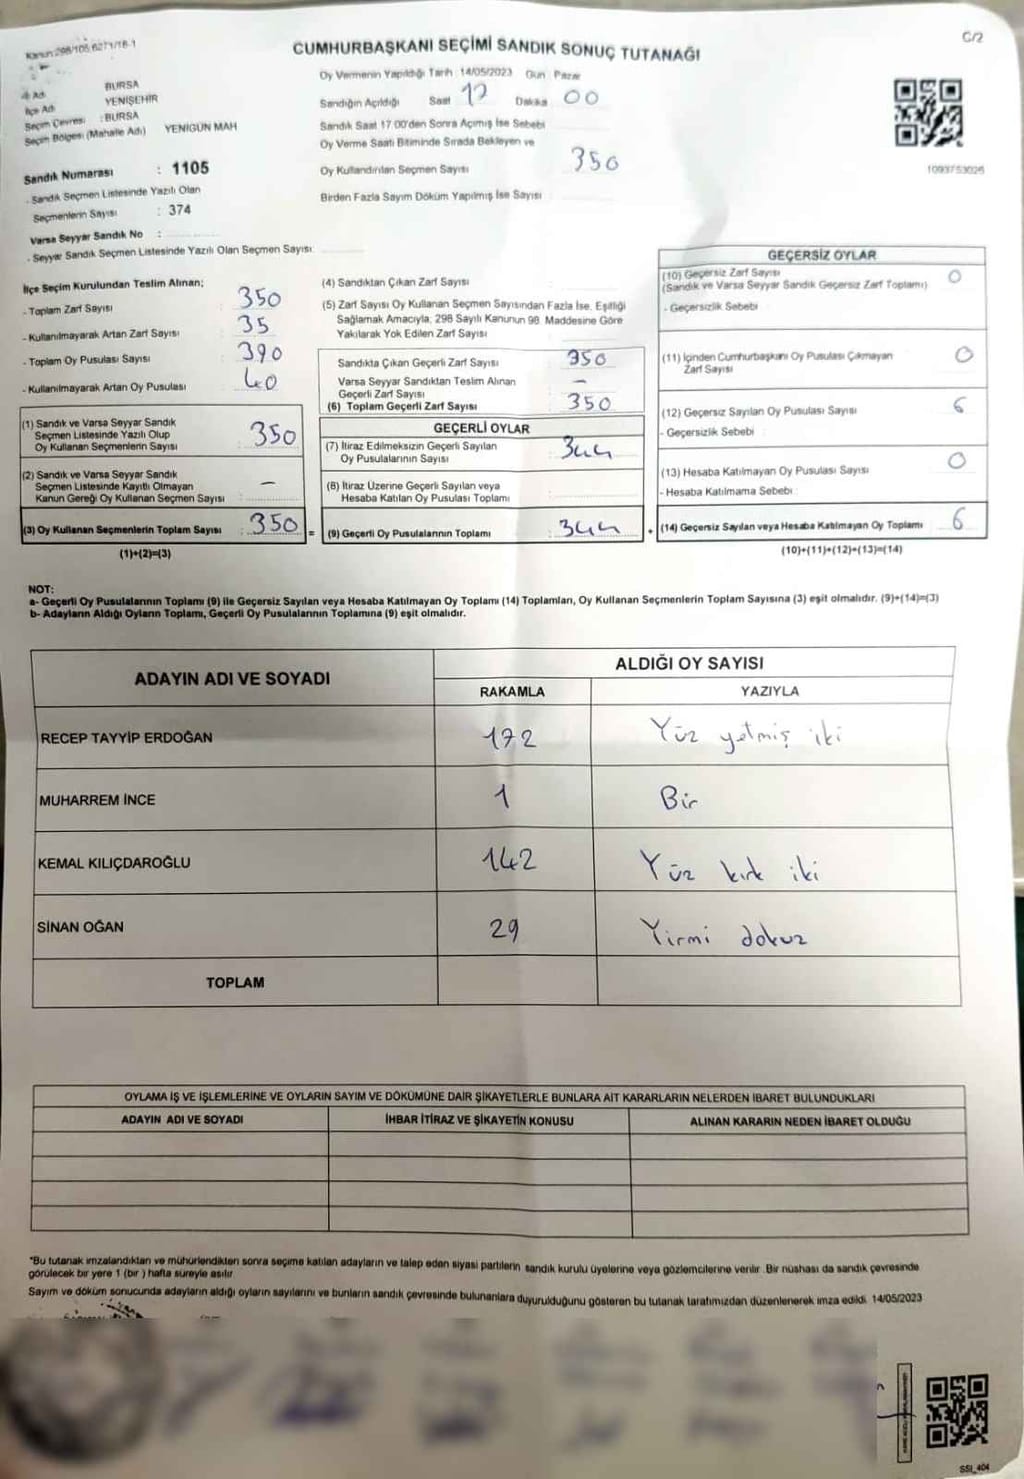 Kanun:298/105,6271/18-1
CUMHURBAŞKANI SEÇİMİ SANDIK SONUÇ TUTANAĞI
C/2
İl Adı : BURSA
İlçe Adı : YENİŞEHİR
Seçim Çevresi : BURSA
Seçim Bölgesi (Mahalle Adı) YENİGÜN MAH
Sandık Numarası : 1105
- Sandık Seçmen Listesinde Yazılı Olan
Seçmenlerin Sayısı : 374
Varsa Seyyar Sandık No :
- Seyyar Sandık Seçmen Listesinde Yazılı Olan Seçmen Sayısı:
Oy Vermenin Yapıldığı Tarih 14/05/2023 Gün Pazar
Sandığın Açıldığı Saat 17 Dakika 00
Sandık Saat 17.00'den Sonra Açılmış İse Sebebi
Oy Verme Saati Bitiminde Sırada Bekleyen ve
Oy Kullandırılan Seçmen Sayısı 350
Birden Fazla Sayım Döküm Yapılmış İse Sayısı
İlçe Seçim Kurulundan Teslim Alınan;
- Toplam Zarf Sayısı 350
- Kullanılmayarak Artan Zarf Sayısı 35
- Toplam Oy Pusulası Sayısı 390
- Kullanılmayarak Artan Oy Pusulası 40
(1) Sandık ve Varsa Seyyar Sandık
Seçmen Listesinde Yazılı Olup
Oy Kullanan Seçmenlerin Sayısı 350
(2) Sandık ve Varsa Seyyar Sandık
Seçmen Listesinde Kayıtlı Olmayan
Kanun Gereği Oy Kullanan Seçmen Sayısı –
(3) Oy Kullanan Seçmenlerin Toplam Sayısı 350 =
(1)+(2)=(3)
(4) Sandıktan Çıkan Zarf Sayısı
(5) Zarf Sayısı Oy Kullanan Seçmen Sayısından Fazla İse, Eşitliği
Sağlamak Amacıyla; 298 Sayılı Kanunun 98. Maddesine Göre
Yakılarak Yok Edilen Zarf Sayısı
Sandıkta Çıkan Geçerli Zarf Sayısı 350
Varsa Seyyar Sandıktan Teslim Alınan
Geçerli Zarf Sayısı –
(6) Toplam Geçerli Zarf Sayısı 350
GEÇERLİ OYLAR
(7) İtiraz Edilmeksizin Geçerli Sayılan
Oy Pusulalarının Sayısı 344
(8) İtiraz Üzerine Geçerli Sayılan veya
Hesaba Katılan Oy Pusulası Toplamı
(9) Geçerli Oy Pusulalarının Toplamı 344 +
GEÇERSİZ OYLAR
(10) Geçersiz Zarf Sayısı 0
(Sandık ve Varsa Seyyar Sandık Geçersiz Zarf Toplamı)
- Geçersizlik Sebebi
(11) İçinden Cumhurbaşkanı Oy Pusulası Çıkmayan
Zarf Sayısı 0
(12) Geçersiz Sayılan Oy Pusulası Sayısı 6
- Geçersizlik Sebebi
(13) Hesaba Katılmayan Oy Pusulası Sayısı 0
- Hesaba Katılmama Sebebi
(14) Geçersiz Sayılan veya Hesaba Katılmayan Oy Toplamı 6
(10)+(11)+(12)+(13)=(14)
NOT:
a- Geçerli Oy Pusulalarının Toplamı (9) ile Geçersiz Sayılan veya Hesaba Katılmayan Oy Toplamı (14) Toplamları, Oy Kullanan Seçmenlerin Toplam Sayısına (3) eşit olmalıdır. (9)+(14)=(3)
b- Adayların Aldığı Oyların Toplamı, Geçerli Oy Pusulalarının Toplamına (9) eşit olmalıdır.
ADAYIN ADI VE SOYADI
ALDIĞI OY SAYISI
RAKAMLA YAZIYLA
RECEP TAYYİP ERDOĞAN 172 Yüz yetmiş iki
MUHARREM İNCE 1 Bir
KEMAL KILIÇDAROĞLU 142 Yüz kırk iki
SİNAN OĞAN 29 Yirmi dokuz
TOPLAM
OYLAMA İŞ VE İŞLEMLERİNE VE OYLARIN SAYIM VE DÖKÜMÜNE DAİR ŞİKAYETLERLE BUNLARA AİT KARARLARIN NELERDEN İBARET BULUNDUKLARI
ADAYIN ADI VE SOYADI İHBAR İTİRAZ VE ŞİKAYETİN KONUSU ALINAN KARARIN NEDEN İBARET OLDUĞU
*Bu tutanak imzalandıktan ve mühürlendikten sonra seçime katılan adayların ve talep eden siyasi partilerin sandık kurulu üyelerine veya gözlemcilerine verilir. Bir nüshası da sandık çevresinde
görülecek bir yere 1 (bir) hafta süreyle asılır.
Sayım ve döküm sonucunda adayların aldığı oyların sayılarını ve bunların sandık çevresinde bulunanlara duyurulduğunu gösteren bu tutanak tarafımızdan düzenlenerek imza edildi. 14/05/2023
SSI_404